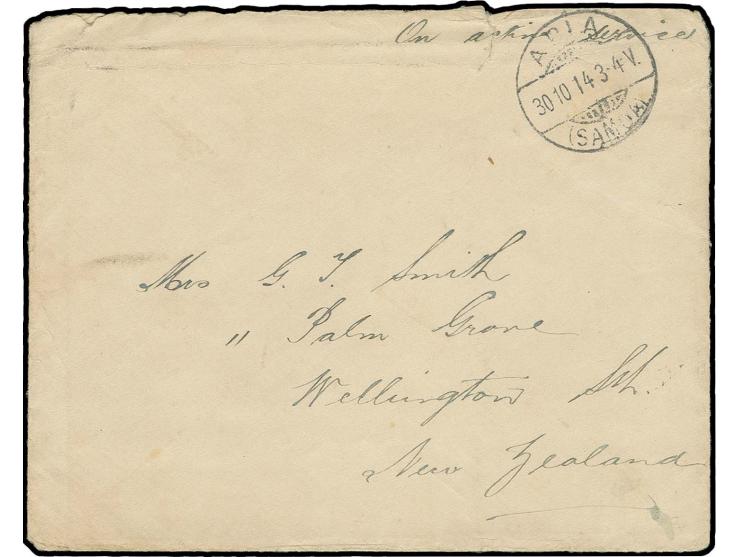 On active service
APIA
30 10 14 3-4 V.
(SAMOA)
Mrs G. T. Smith
11 Palm Grove
Wellington Sth.
New Zealand